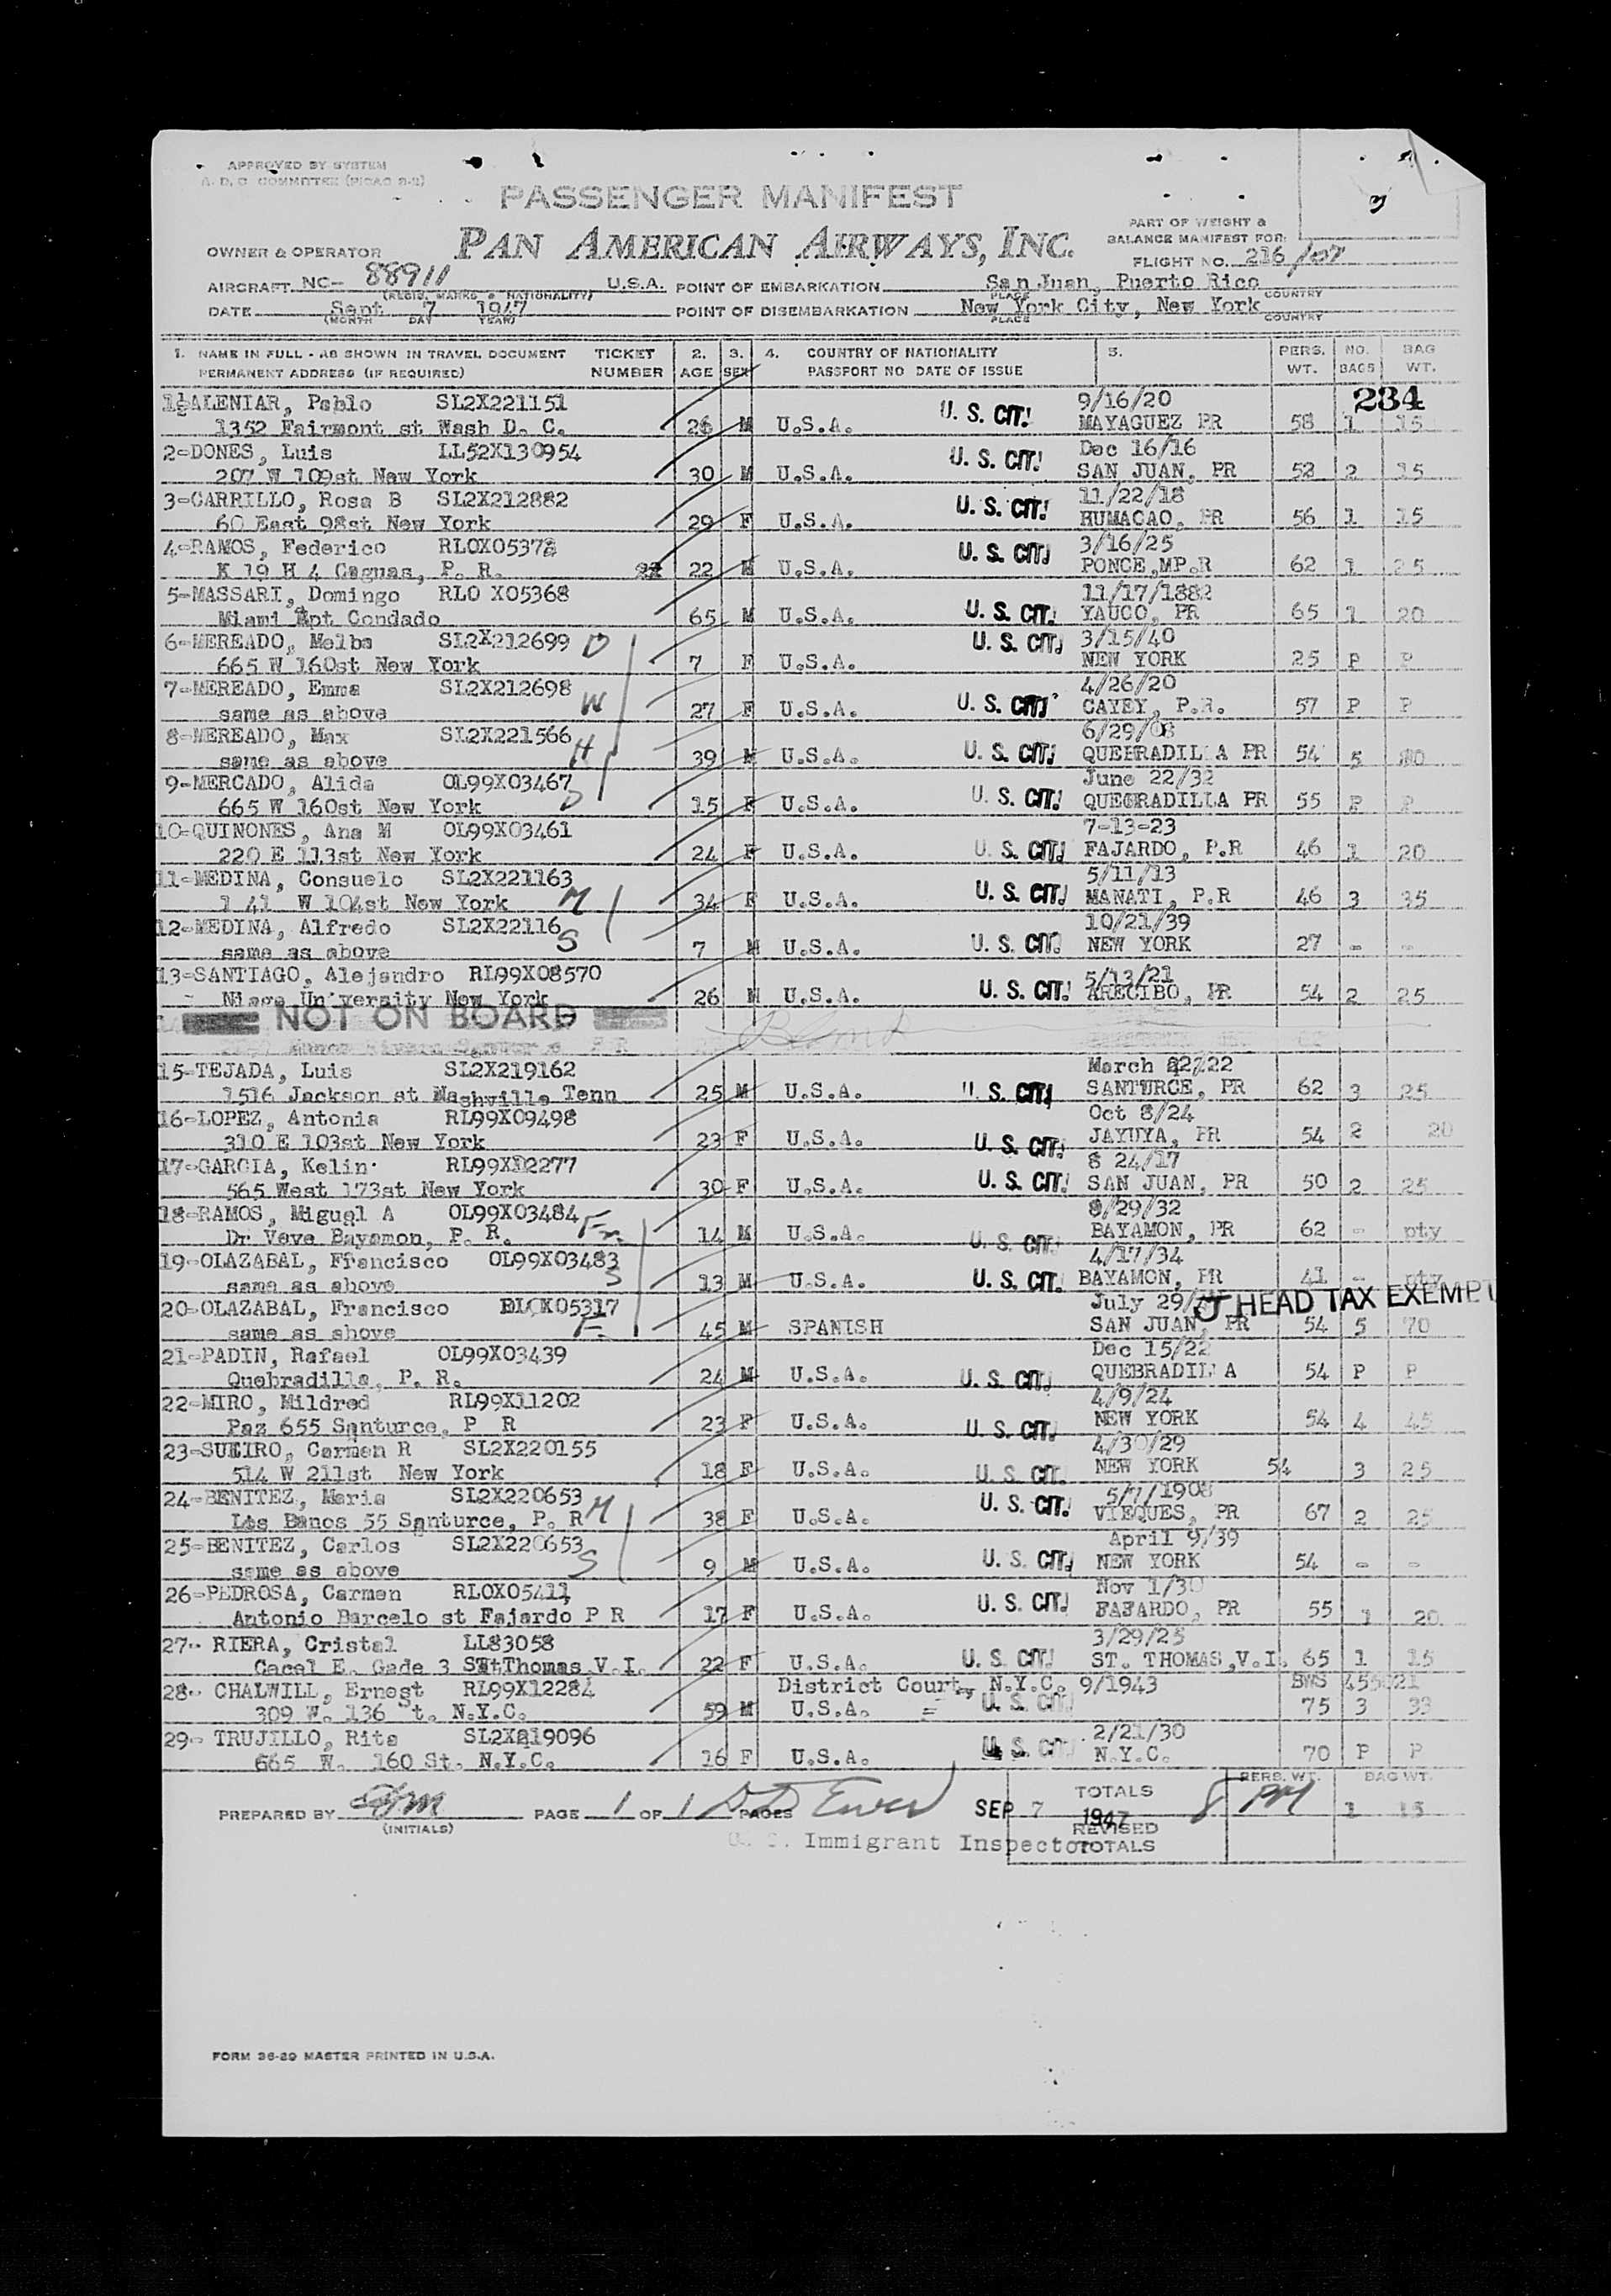 APPROVED BY SYSTEM
A. D. C COMMITTEE (PICAO 2-2)
PASSENGER MANIFEST
PART OF WEIGHT &
BALANCE MANIFEST FOR:
OWNER & OPERATOR PAN AMERICAN AIRWAYS, INC.
FLIGHT NO. 216/107
AIRCRAFT NC- 88911 U.S.A. POINT OF EMBARKATION San Juan, Puerto Rico
(REGIS. MARKS & NATIONALITY) PLACE COUNTRY
DATE Sept 7 1947 POINT OF DISEMBARKATION New York City, New York
(MONTH DAY YEAR) PLACE COUNTRY
1. NAME IN FULL - AS SHOWN IN TRAVEL DOCUMENT TICKET 2. 3. 4. COUNTRY OF NATIONALITY 5. PERS. NO. BAG
PERMANENT ADDRESS (IF REQUIRED) NUMBER AGE SEX PASSPORT NO DATE OF ISSUE WT. BAGS WT.
234
1-ALENIAR, Pablo SL2X221151 U. S. CIT. 9/16/20
1352 Fairmont st Wash D. C. 26 M U.S.A. MAYAGUEZ PR 58 1 15
2-DONES, Luis LL52X130954 U. S. CIT. Dec 16/16
207 W 109st New York 30 M U.S.A. SAN JUAN, PR 58 2 15
3-CARRILLO, Rosa B SL2X212882 U. S. CIT. 11/22/18
60 East 98st New York 29 F U.S.A. HUMACAO, PR 56 1 15
4-RAMOS, Federico RLOX05372 U. S. CIT. 3/16/25
K 19 H 4 Caguas, P. R. 22 M U.S.A. PONCE,MP.R 62 1 25
5-MASSARI, Domingo RLO X05368 11/17/1882
Miami Apt Condado 65 M U.S.A. U. S. CIT. YAUCO, PR 65 1 20
6-MEREADO, Melba SL2X212699 D U. S. CIT. 3/15/40
665 W 160st New York 7 F U.S.A. NEW YORK 25 P P
7-MEREADO, Emma SL2X212698 W 4/26/20
same as above 27 F U.S.A. U. S. CIT. CAYEY, P.R. 57 P P
8-MEREADO, Max SL2X221566 H 6/29/08
same as above 39 M U.S.A. U. S. CIT. QUEBRADILLA PR 54 5 80
9-MERCADO, Alida OL99X03467 D June 22/32
665 W 160st New York 15 F U.S.A. U. S. CIT. QUEBRADILLA PR 55 P P
10-QUINONES, Ana M OL99X03461 7-13-23
220 E 113st New York 24 F U.S.A. U. S. CIT. FAJARDO, P.R 46 1 20
11-MEDINA, Consuelo SL2X221163 M 5/11/13
1 41 W 104st New York 34 F U.S.A. U. S. CIT. MANATI, P.R 46 3 35
12-MEDINA, Alfredo SL2X22116 S 10/21/39
same as above 7 M U.S.A. U. S. CIT. NEW YORK 27 - -
13-SANTIAGO, Alejandro RL99X08570 5/13/21
Niaga Un'versity New York 26 M U.S.A. U. S. CIT. ARECIBO, PR 54 2 25
NOT ON BOARD
15-TEJADA, Luis SL2X219162 March 22/22
1516 Jackson st Nashville Tenn 25 M U.S.A. U. S. CIT. SANTURCE, PR 62 3 25
16-LOPEZ, Antonia RL99X09498 Oct 8/24
310 E 103st New York 23 F U.S.A. U. S. CIT. JAYUYA, PR 54 2 20
17-GARCIA, Kelin RL99X12277 8 24/17
565 West 173st New York 30 F U.S.A. U. S. CIT. SAN JUAN, PR 50 2 25
18-RAMOS, Migual A OL99X03484 8/29/32
Dr Veve Bayamon, P. R. 14 M U.S.A. U. S. CIT. BAYAMON, PR 62 - pty
19-OLAZABAL, Francisco OL99X03483 S 4/17/34
same as above 13 M U.S.A. U. S. CIT. BAYAMON, PR 41 - pty
20-OLAZABAL, Francisco F July 29/ HEAD TAX EXEMPT
same as above 45 M SPANISH SAN JUAN, PR 54 5 70
21-PADIN, Rafael OL99X03439 Dec 15/22
Quebradilla, P. R. 24 M U.S.A. U. S. CIT. QUEBRADILLA 54 P P
22-MIRO, Mildred RL99X11202 4/9/24
Paz 655 Santurce, P R 23 F U.S.A. U. S. CIT. NEW YORK 54 4 45
23-SUEIRO, Carmen R SL2X220155 4/30/29
514 W 211st New York 18 F U.S.A. U. S. CIT. NEW YORK 54 3 25
24-BENITEZ, Maria SL2X220653 M U. S. CIT. 5/7/1908
Los Banos 55 Santurce, P. R 38 F U.S.A. VIEQUES, PR 67 2 25
25-BENITEZ, Carlos SL2X220653 S April 9/39
same as above 9 M U.S.A. U. S. CIT. NEW YORK 54 - -
26-PEDROSA, Carmen RLOX05411 Nov 1/30
Antonio Barcelo st Fajardo P R 17 F U.S.A. U. S. CIT. FAFARDO, PR 55 1 20
27- RIERA, Cristal LL83058 3/29/25
Cacel E. Gade 3 St Thomas V.I. 22 F U.S.A. U. S. CIT. ST. THOMAS,V.I. 65 1 15
28- CHALWILL, Ernest RL99X12284 District Court, N.Y.C. 9/1943 BWS
309 W. 136 t. N.Y.C. 59 M U.S.A. = U. S. CIT. 75 3 33
29- TRUJILLO, Rita SL2X219096 2/21/30
665 W. 160 St. N.Y.C. 16 F U.S.A. U. S. CIT. N.Y.C. 70 P P
PERS. WT. BAG WT.
PREPARED BY PAGE 1 OF 1 PAGES SEP 7 1947 TOTALS 8 PM 1 15
(INITIALS) REVISED
U. S. Immigrant Inspector TOTALS
FORM 36-29 MASTER PRINTED IN U.S.A.